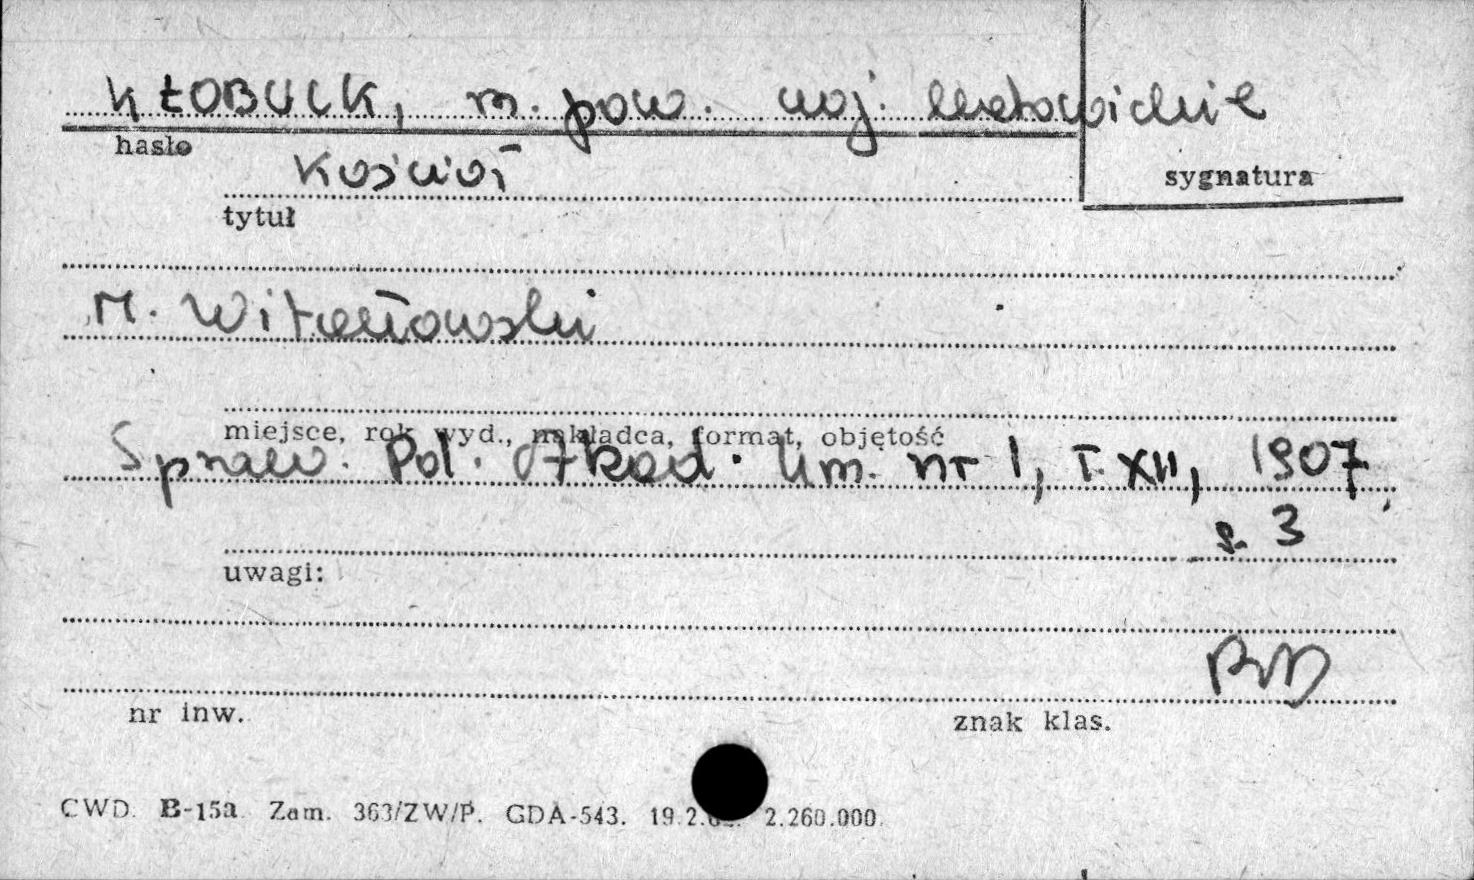 KŁOBUCK, m. pow. woj. katowickie
hasło
sygnatura
Kościół
tytuł
M. Witanowski
miejsce, rok wyd., nakładca, format, objętość
Spraw. Pol. Akad. Um. nr 1, T. XII, 1907,
s. 3
uwagi:
nr inw.
znak klas.
CWD. B-15a Zam. 363/ZW/P. GDA-543. 19.2. 2.260.000